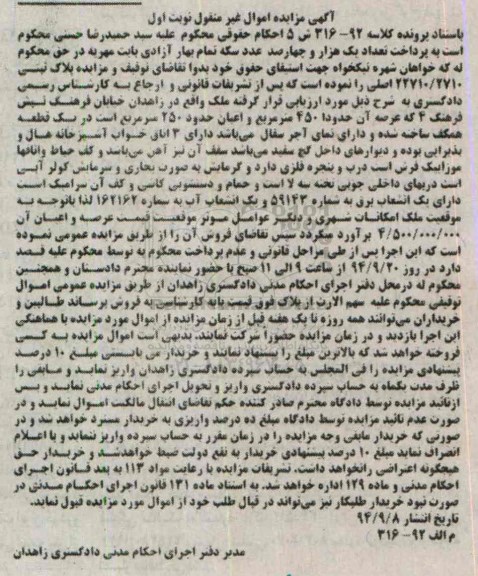 آگهی مزایده اموال غیر منقول نوبت اول
باستناد پرونده کلاسه ۹۲- ۳۱۶ ش ۵ احکام حقوقی محکوم علیه سید حمیدرضا حسنی محکوم
است به پرداخت تعداد یک هزار و چهارصد عدد سکه تمام بهار آزادی بابت مهریه در حق محکوم
له که خواهان شهره نیکخواه جهت استیفای حقوق خود بدوا تقاضای توقیف و مزایده پلاک ثبتی
۲۲۷۱۰/۲۷۱۰ اصلی را نموده است که پس از تشریفات قانونی و ارجاع به کارشناس رسمی
دادگستری به شرح ذیل مورد ارزیابی قرار گرفته ملک واقع در زاهدان خیابان فرهنگ نبش
فرهنگ ۴ که عرصه آن حدودا ۴۵۰ مترمربع و اعیان حدود ۲۵۰ مترمربع است در یک قطعه
همکف ساخته شده و دارای نمای آجر سفال می‌باشد دارای ۳ اتاق خواب آشپزخانه هال و
پذیرایی بوده و دیوارهای داخل گچ سفید می‌باشد سقف آن تیر آهن می‌باشد و کف حیاط واتاقها
موزاییک فرش است درب و پنجره فلزی دارد و گرمایش به صورت بخاری و سرمایش کولر آبی
است دربهای داخلی چوبی تخته سه لا است و حمام و دستشویی کاشی و کف آن سرامیک است
دارای یک انشعاب برق به شماره ۵۹۱۴۳ و یک انشعاب آب به شماره ۱۶۲۱۶۲ لذا باتوجه به
موقعیت ملک امکانات شهری و دیگر عوامل موثر موقعیت قیمت عرصه و اعیان آن
۴/۵۰۰/۰۰۰/۰۰۰ برآورد میگردد سپس تقاضای فروش آن را از طریق مزایده عمومی نموده
است که این اجرا پس از طی مراحل قانونی و عدم پرداخت محکوم به توسط محکوم علیه قصد
دارد در روز ۹۴/۹/۲۰ از ساعت ۹ الی ۱۱ صبح با حضور نماینده محترم دادستان و همچنین
محکوم له درمحل دفتر اجرای احکام مدنی دادگستری زاهدان از طریق مزایده عمومی اموال
توقیفی محکوم علیه سهم الارث از پلاک فوق قیمت پایه کارشناسی به فروش برساند طالبین و
خریداران می‌توانند همه روزه تا یک هفته قبل از زمان مزایده از اموال مورد مزایده با هماهنگی
این اجرا بازدید و در زمان مزایده حضورا شرکت نمایند. بدیهی است اموال مزایده به کسی
فروخته خواهد شد که بالاترین مبلغ را پیشنهاد نمایند و خریدار می بایستی مبلغ ۱۰ درصد
پیشنهادی مزایده را فی المجلس به حساب سپرده دادگستری زاهدان واریز نماید و مابقی را
ظرف مدت یکماه به حساب سپرده دادگستری واریز و تحویل اجرای احکام مدنی نماید و پس
ازتائید مزایده توسط دادگاه محترم صادر کننده حکم تقاضای انتقال مالکیت اموال نماید و در
صورت عدم تائید مزایده توسط دادگاه مبلغ ده درصد واریزی به خریدار مسترد خواهد شد و در
صورتی که خریدار مابقی وجه مزایده را در زمان مقرر به حساب سپرده واریز ننماید و یا اعلام
انصراف نماید مبلغ ۱۰ درصد پیشنهادی خریدار به نفع دولت ضبط خواهدشد و خریدار حق
هیچگونه اعتراضی رانخواهد داشت. تشریفات مزایده با رعایت مواد ۱۱۳ به بعد قانون اجرای
احکام مدنی و ماده ۱۲۹ اداره خواهد شد. به استناد ماده ۱۳۱ قانون اجرای احکام مدنی در
صورت نبود خریدار طلبکار نیز می‌تواند در قبال طلب خود از اموال مورد مزایده قبول نماید.
تاریخ انتشار ۹۴/۹/۸
م الف ۹۲- ۳۱۶
مدیر دفتر اجرای احکام مدنی دادگستری زاهدان